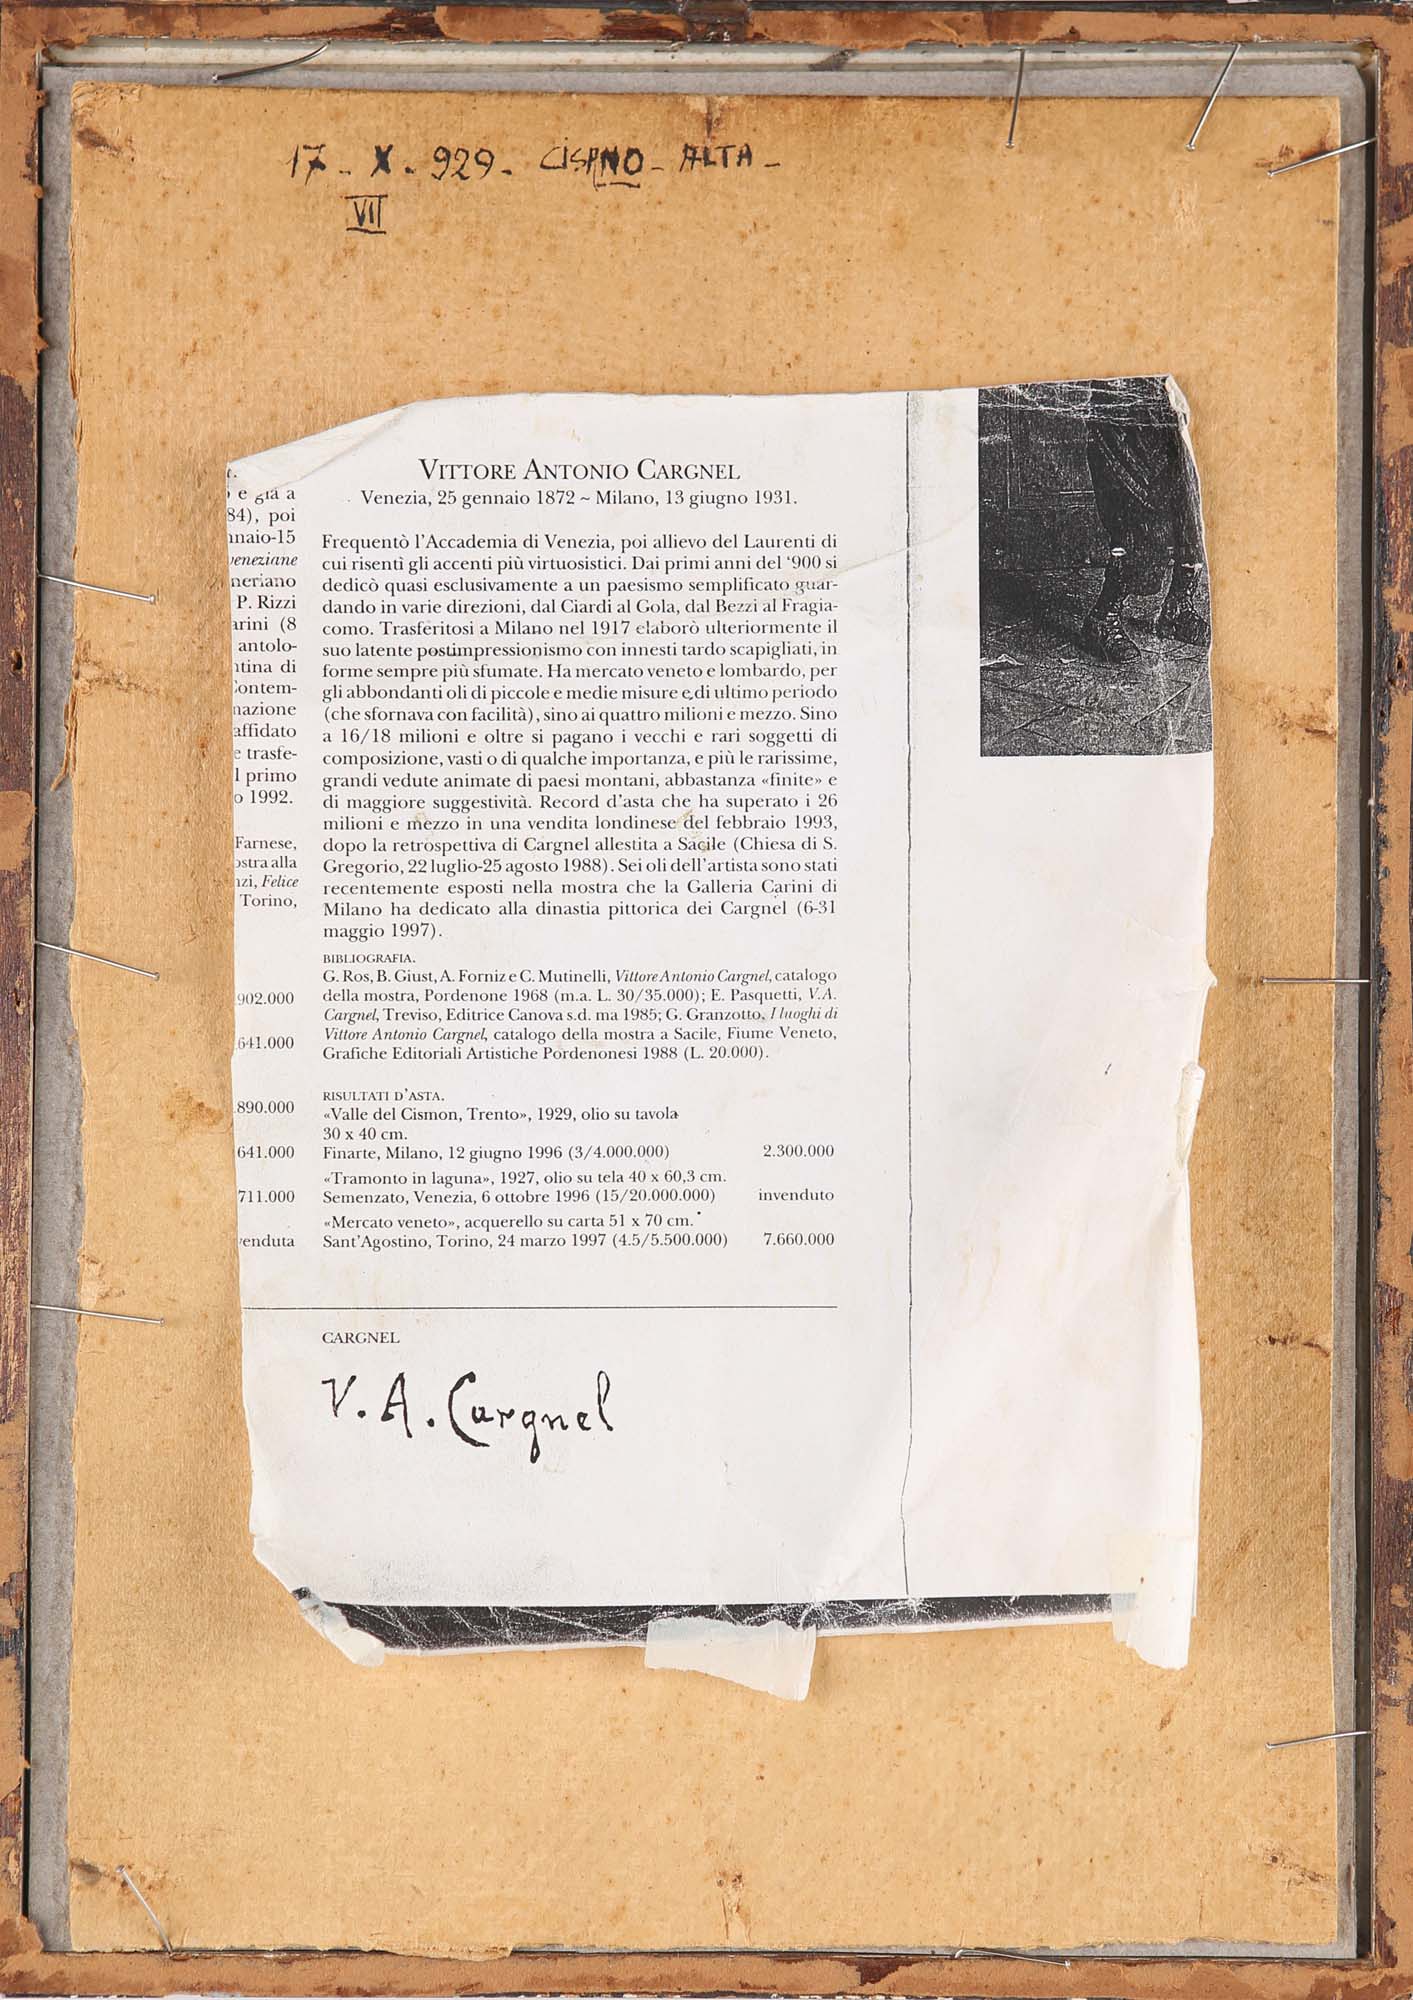 17 - X - 929 - CISANO - ALTA -
VII
e già a
84), poi
nnaio-15
veneziane
neriano
P. Rizzi
arini (8
antolo-
ntina di
Contem-
nazione
affidato
e trasfe-
l primo
o 1992.
Farnese,
ostra alla
nzi, Felice
Torino,
902.000
641.000
890.000
641.000
711.000
venduta
VITTORE ANTONIO CARGNEL
Venezia, 25 gennaio 1872 ~ Milano, 13 giugno 1931.
Frequentò l'Accademia di Venezia, poi allievo del Laurenti di
cui risentì gli accenti più virtuosistici. Dai primi anni del '900 si
dedicò quasi esclusivamente a un paesismo semplificato guar-
dando in varie direzioni, dal Ciardi al Gola, dal Bezzi al Fragia-
como. Trasferitosi a Milano nel 1917 elaborò ulteriormente il
suo latente postimpressionismo con innesti tardo scapigliati, in
forme sempre più sfumate. Ha mercato veneto e lombardo, per
gli abbondanti oli di piccole e medie misure e di ultimo periodo
(che sfornava con facilità), sino ai quattro milioni e mezzo. Sino
a 16/18 milioni e oltre si pagano i vecchi e rari soggetti di
composizione, vasti o di qualche importanza, e più le rarissime,
grandi vedute animate di paesi montani, abbastanza «finite» e
di maggiore suggestività. Record d'asta che ha superato i 26
milioni e mezzo in una vendita londinese del febbraio 1993,
dopo la retrospettiva di Cargnel allestita a Sacile (Chiesa di S.
Gregorio, 22 luglio-25 agosto 1988). Sei oli dell'artista sono stati
recentemente esposti nella mostra che la Galleria Carini di
Milano ha dedicato alla dinastia pittorica dei Cargnel (6-31
maggio 1997).
BIBLIOGRAFIA.
G. Ros, B. Giust, A. Forniz e C. Mutinelli, Vittore Antonio Cargnel, catalogo
della mostra, Pordenone 1968 (m.a. L. 30/35.000); E. Pasquetti, V.A.
Cargnel, Treviso, Editrice Canova s.d. ma 1985; G. Granzotto, I luoghi di
Vittore Antonio Cargnel, catalogo della mostra a Sacile, Fiume Veneto,
Grafiche Editoriali Artistiche Pordenonesi 1988 (L. 20.000).
RISULTATI D'ASTA.
«Valle del Cismon, Trento», 1929, olio su tavola
30 x 40 cm.
Finarte, Milano, 12 giugno 1996 (3/4.000.000) 2.300.000
«Tramonto in laguna», 1927, olio su tela 40 x 60,3 cm.
Semenzato, Venezia, 6 ottobre 1996 (15/20.000.000) invenduto
«Mercato veneto», acquerello su carta 51 x 70 cm.
Sant'Agostino, Torino, 24 marzo 1997 (4.5/5.500.000) 7.660.000
CARGNEL
V. A. Cargnel